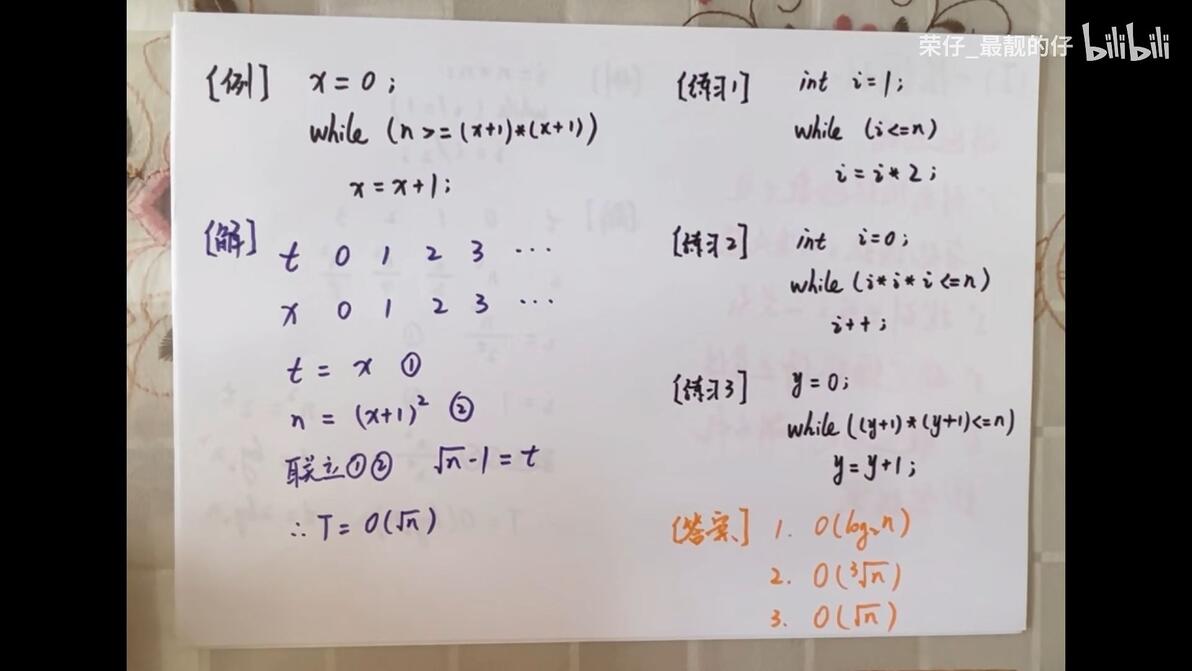 荣仔_最靓的仔 bilibili
[例] x=0;
while (n>=(x+1)*(x+1))
x=x+1;
[解]
t 0 1 2 3 ...
x 0 1 2 3 ...
t = x ①
n = (x+1)² ②
联立①② √n-1=t
∴T=O(√n)
[练习1] int i=1;
while (i<=n)
i=i*2;
[练习2] int i=0;
while (i*i*i<=n)
i++;
[练习3] y=0;
while((y+1)*(y+1)<=n)
y=y+1;
[答案] 1. O(log₂n)
2. O(³√n)
3. O(√n)